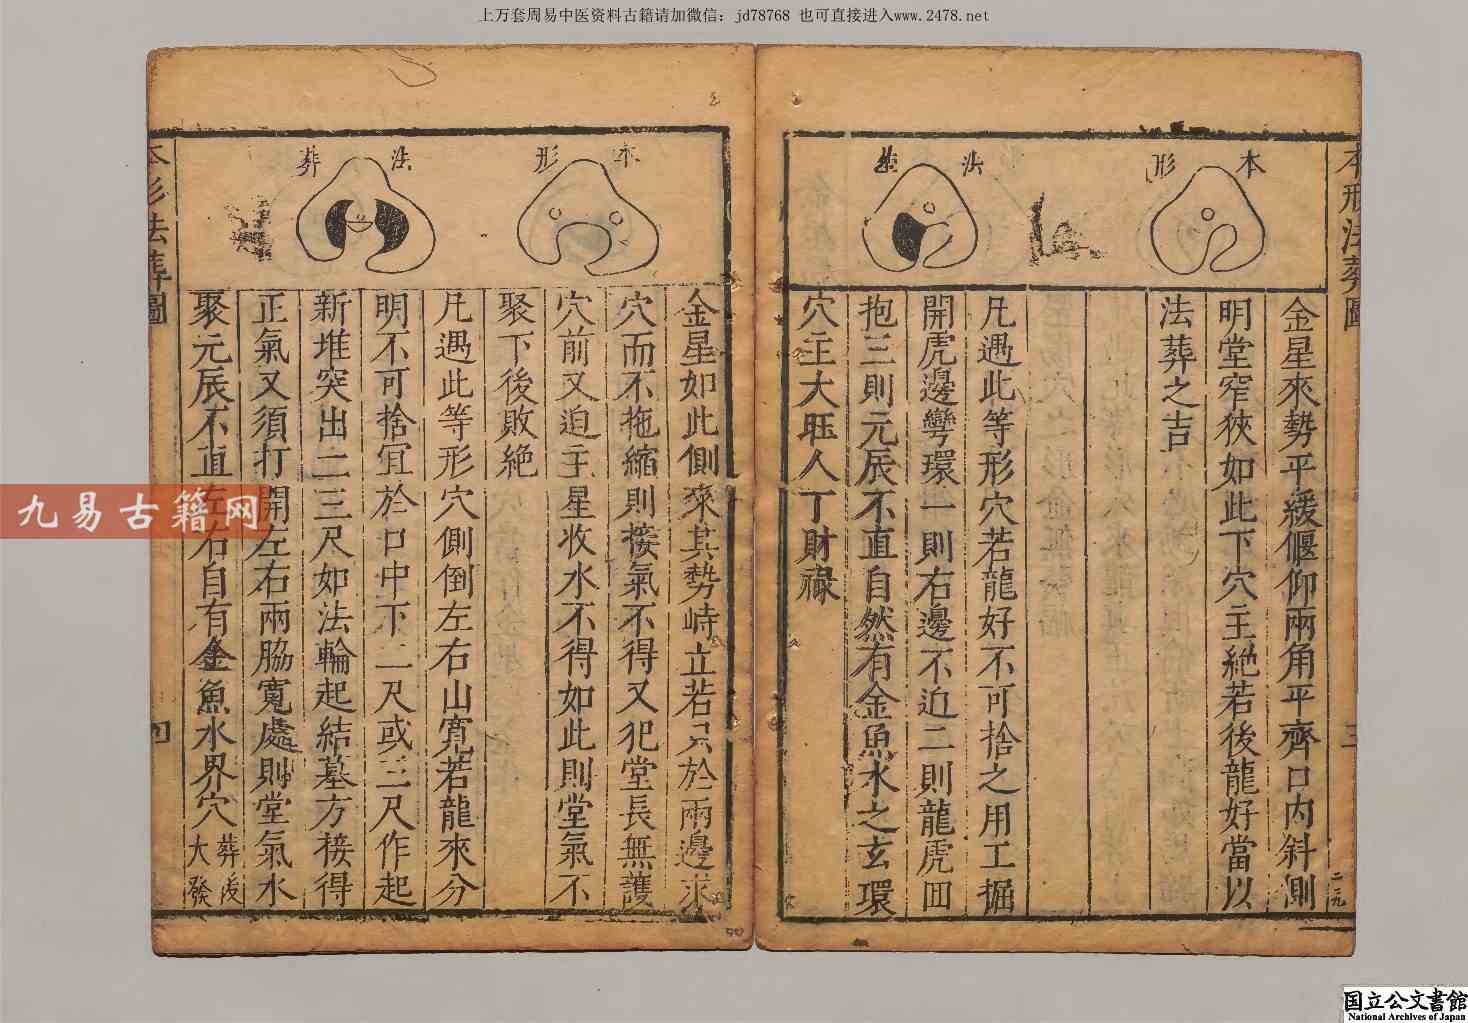 上万套周易中医资料古籍请加微信：jd78768 也可直接进入www.2478.net
本形法葬圖
本形
法葬
金星來勢平緩偃仰兩角平齊口内斜側
明堂窄狹如此下穴主絶若後龍好當以
法葬之吉
凡遇此等形穴若龍好不可捨之用工掘
開虎邊彎環一則右邊不迫二則龍虎回
抱三則元辰不直自然有金魚水之玄環
穴主大旺人丁財祿
三
二九
本形
法葬
金星如此側來其勢峙立若只於兩邊求
穴而不拖縮則接氣不得又犯堂長無護
穴前又迫主星收水不得如此則堂氣不
聚下後敗絶
凡遇此等形穴側倒左右山寬若龍來分
明不可捨宜於口中下二尺或三尺作起
新堆突出二三尺如法輪起結墓方接得
正氣又須打開左右兩脇寬處則堂氣水
聚元辰不直左右自有金魚水界穴葬後大發
本形法葬圖
四
九易古籍网
国立公文書館
National Archives of Japan